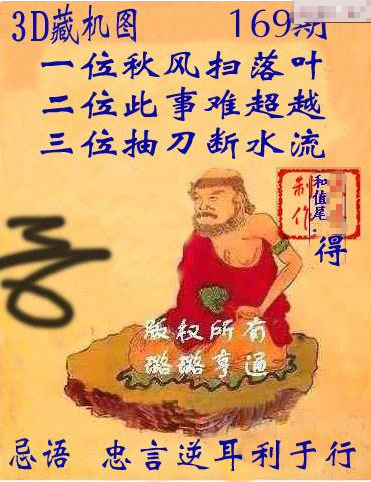 3D藏机图 169期
一位秋风扫落叶
二位此事难超越
三位抽刀断水流
制作
和值尾
得
版权所有
璐璐亨通
忌语 忠言逆耳利于行